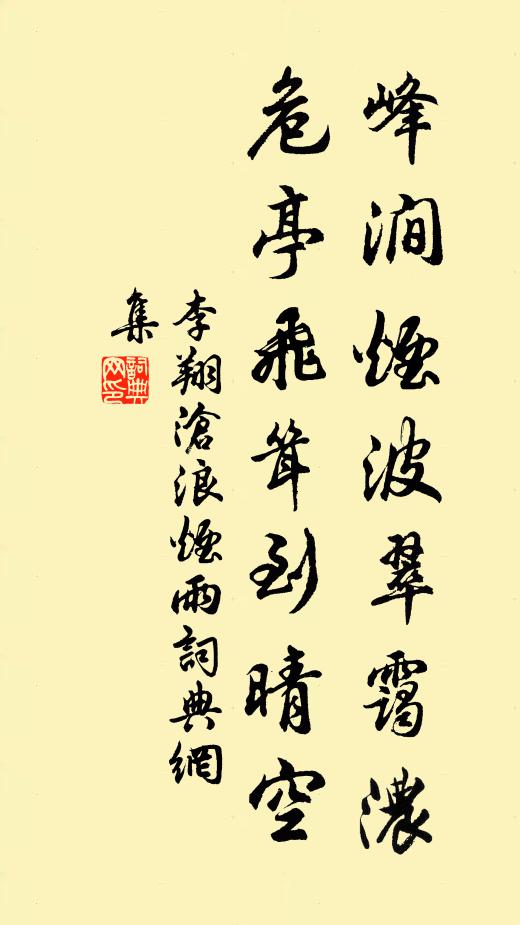 峰澗煙波翠靄濃
危亭飛聳到晴空
李翔滄浪煙雨詞典網
集
詞典網印